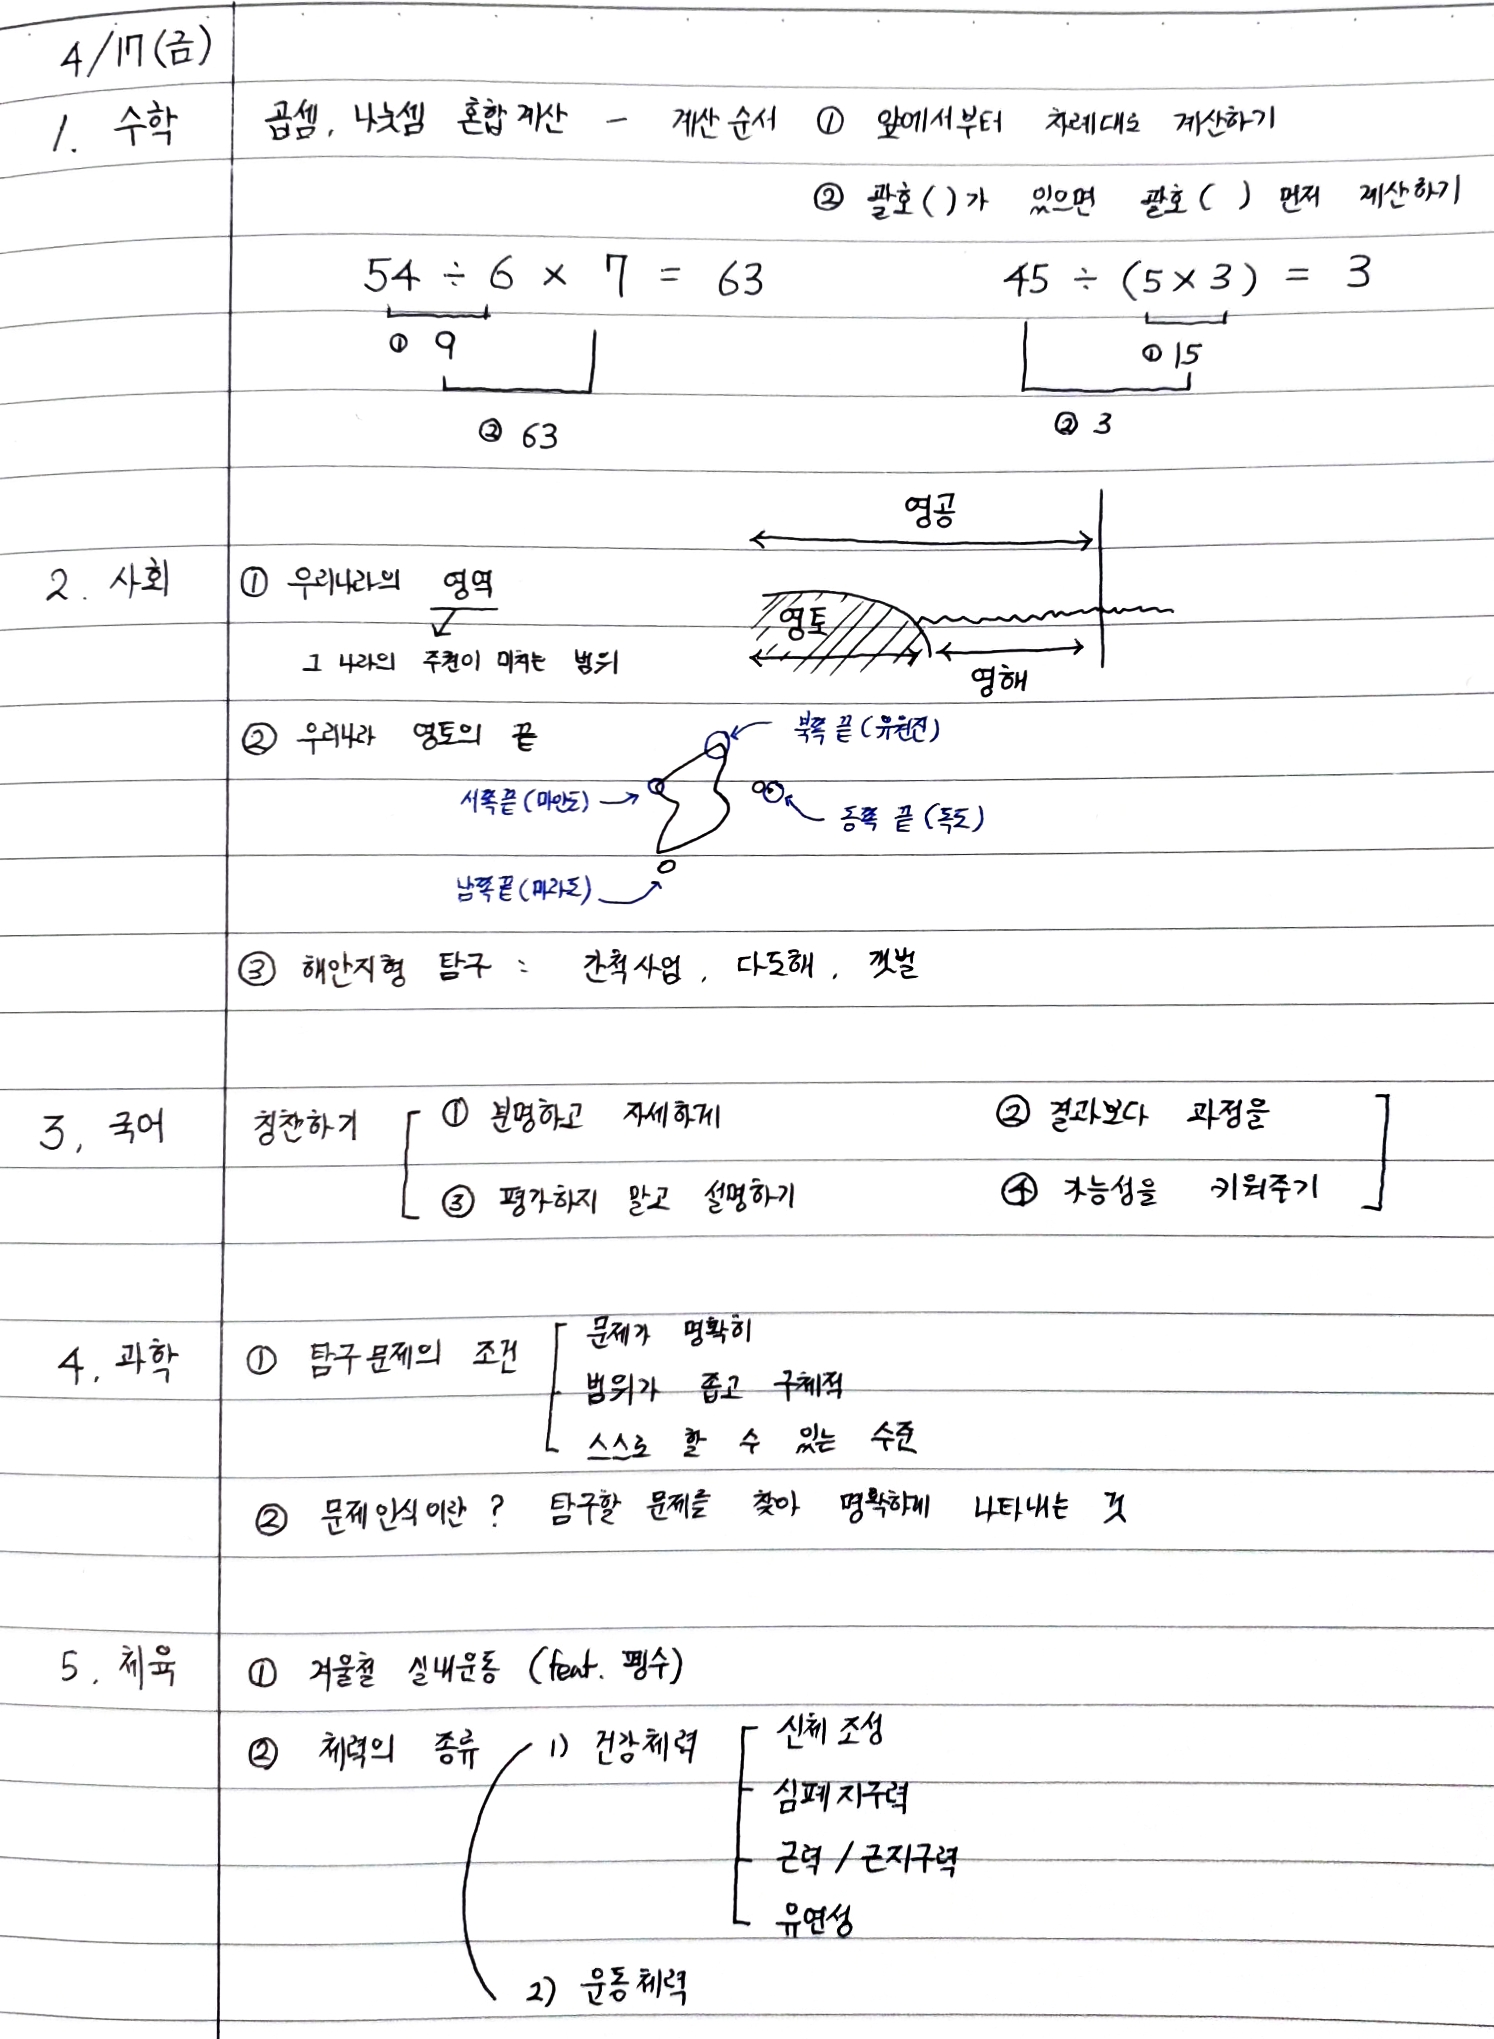 4/17(금)
1. 수학 곱셈, 나눗셈 혼합 계산 - 계산 순서 ① 앞에서부터 차례대로 계산하기
② 괄호( )가 있으면 괄호( ) 먼저 계산하기
54 ÷ 6 × 7 = 63 45 ÷ (5 × 3) = 3
① 9 ① 15
② 63 ② 3
영공
2. 사회 ① 우리나라의 영역
영토
그 나라의 주권이 미치는 범위
영해
② 우리나라 영토의 끝
북쪽 끝(유원진)
서쪽끝(마안도)
동쪽 끝(독도)
남쪽끝(마라도)
③ 해안지형 탐구 : 간척사업, 다도해, 갯벌
3. 국어 칭찬하기 ① 분명하고 자세하게 ② 결과보다 과정을
③ 평가하지 말고 설명하기 ④ 가능성을 키워주기
4. 과학 ① 탐구문제의 조건 문제가 명확히
범위가 좁고 구체적
스스로 할 수 있는 수준
② 문제인식이란? 탐구할 문제를 찾아 명확하게 나타내는 것
5. 체육 ① 겨울철 실내운동 (feat. 펭수)
② 체력의 종류 1) 건강체력 신체조성
심폐지구력
근력 / 근지구력
유연성
2) 운동체력